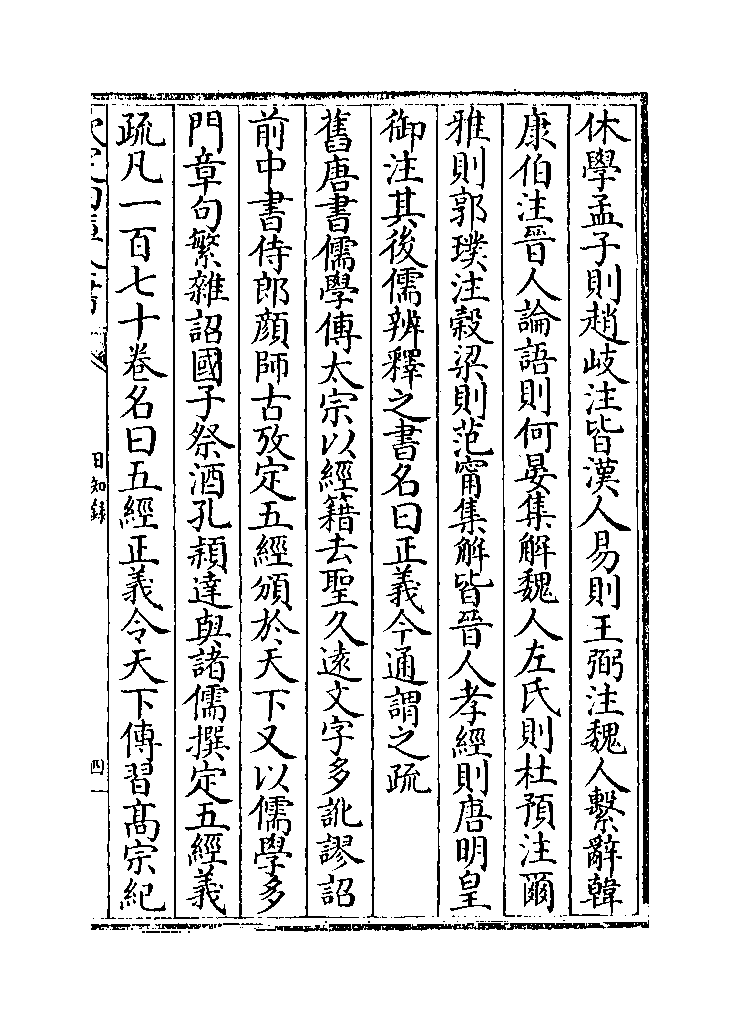 休學孟子則趙岐注皆漢人易則王弼注魏人繫辭韓
康伯注晉人論語則何晏集解魏人左氏則杜預注爾
雅則郭璞注穀梁則范甯集解皆晉人孝經則唐明皇
御注其後儒辨釋之書名曰正義今通謂之疏
舊唐書儒學傳太宗以經籍去聖久遠文字多訛謬詔
前中書侍郎顔師古攷定五經頒於天下又以儒學多
門章句繁雜詔國子祭酒孔穎達與諸儒撰定五經義
疏凡一百七十卷名曰五經正義令天下傳習髙宗紀
日知錄
四一